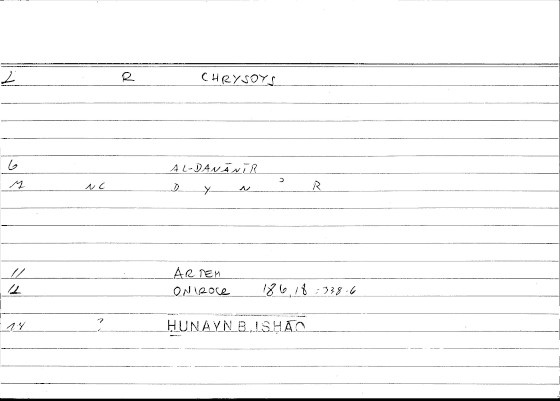 1 R CHRYSOYS
6 AL-DANĀNĪR
M NC D Y N ʾ R
11 ARTEM
12 ONIROCR 186,18 : 338.6
14 ? HUNAYN B. ISHAQ